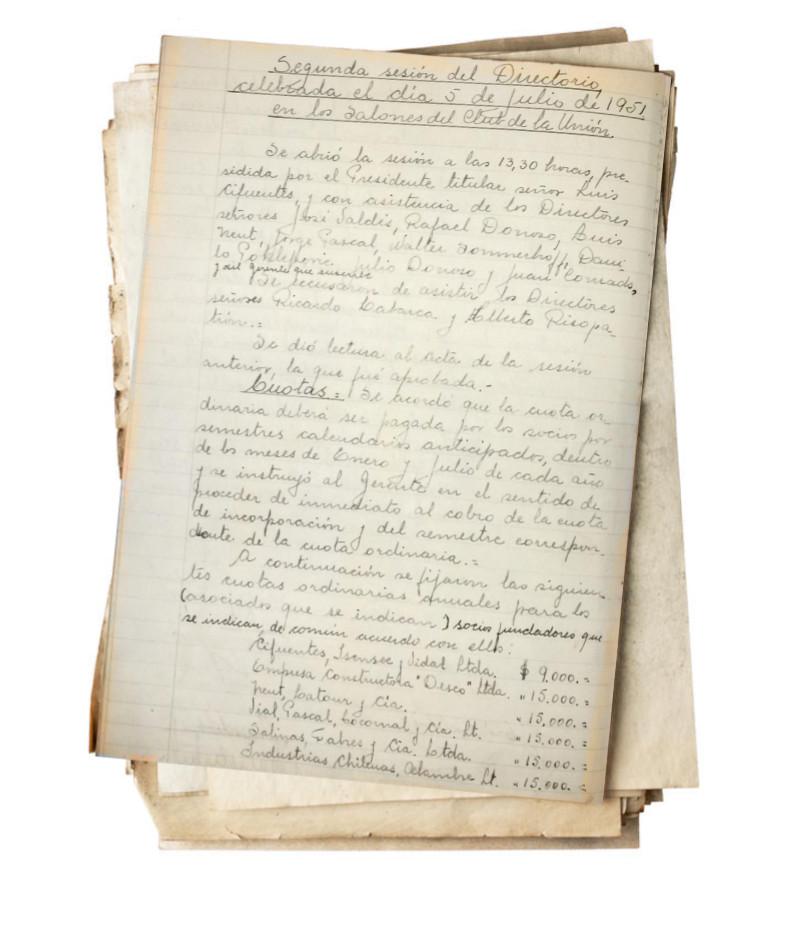 Segunda sesión del Directorio,
celebrada el día 5 de Julio de 1951
en los Salones del Club de la Unión.
Se abrió la sesión a las 13,30 horas, pre-
sidida por el Presidente titular señor Luis
Cifuentes, y con asistencia de los Directores
señores José Valdés, Rafael Donoso, Luis
Neut, Jorge Pascal, Walter Sommerhoff, Dani-
lo Julio Donoso y Juan Conrads,
y del Gerente que suscribe
Se excusaron de asistir los Directores
señores Ricardo Labarca y Alberto Risopa-
trón.=
Se dió lectura al acta de la sesión
anterior, la que fué aprobada.-
Cuotas.= Se acordó que la cuota or-
dinaria deberá ser pagada por los socios por
semestres calendarios anticipados, dentro
de los meses de Enero y Julio de cada año
y se instruyó al Gerente en el sentido de
proceder de inmediato al cobro de la cuota
de incorporación y del semestre correspon-
diente de la cuota ordinaria.=
A continuación se fijaron las siguien-
tes cuotas ordinarias anuales para los
(asociados que se indican) socios fundadores que
se indican, de común acuerdo con ellos:
Cifuentes, Isensee y Vidal Ltda. $ 9.000.=
Empresa Constructora "Desco" Ltda. " 15.000.=
Neut, Latour y Cía. " 15.000.=
Vial, Pascal, y Cía. Lt. " 15.000.=
Salinas, Fabres y Cía. Ltda. " 15.000.=
Industrias Chilenas, Lt. " 15.000.=